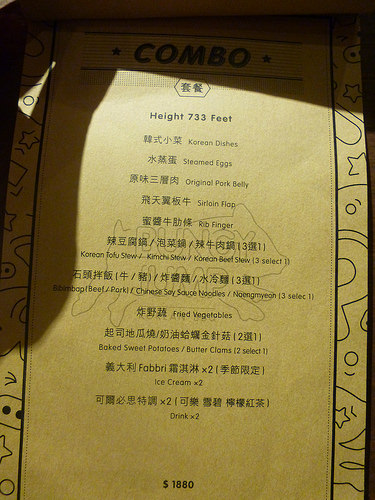 ★ COMBO ★
套餐
Height 733 Feet
韓式小菜 Korean Dishes
水蒸蛋 Steamed Eggs
原味三層肉 Original Pork Belly
飛天翼板牛 Sirloin Flap
蜜醬牛肋條 Rib Finger
辣豆腐鍋 / 泡菜鍋 / 辣牛肉鍋 (3選1)
Korean Tofu Stew / Kimchi Stew / Korean Beef Stew (3 select 1)
石頭拌飯 (牛 / 豬) / 炸醬麵 / 水冷麵 (3選1)
Bibimbap (Beef / Pork) / Chinese Soy Sauce Noodles / Naengmyeon (3 selec 1)
炸野蔬 Fried Vegetables
起司地瓜燒/奶油蛤蠣金針菇 (2選1)
Baked Sweet Potatoes / Butter Clams (2 select 1)
義大利 Fabbri 霜淇淋 ×2 (季節限定)
Ice Cream ×2
可爾必思特調 ×2 (可樂 雪碧 檸檬紅茶)
Drink ×2
$ 1880